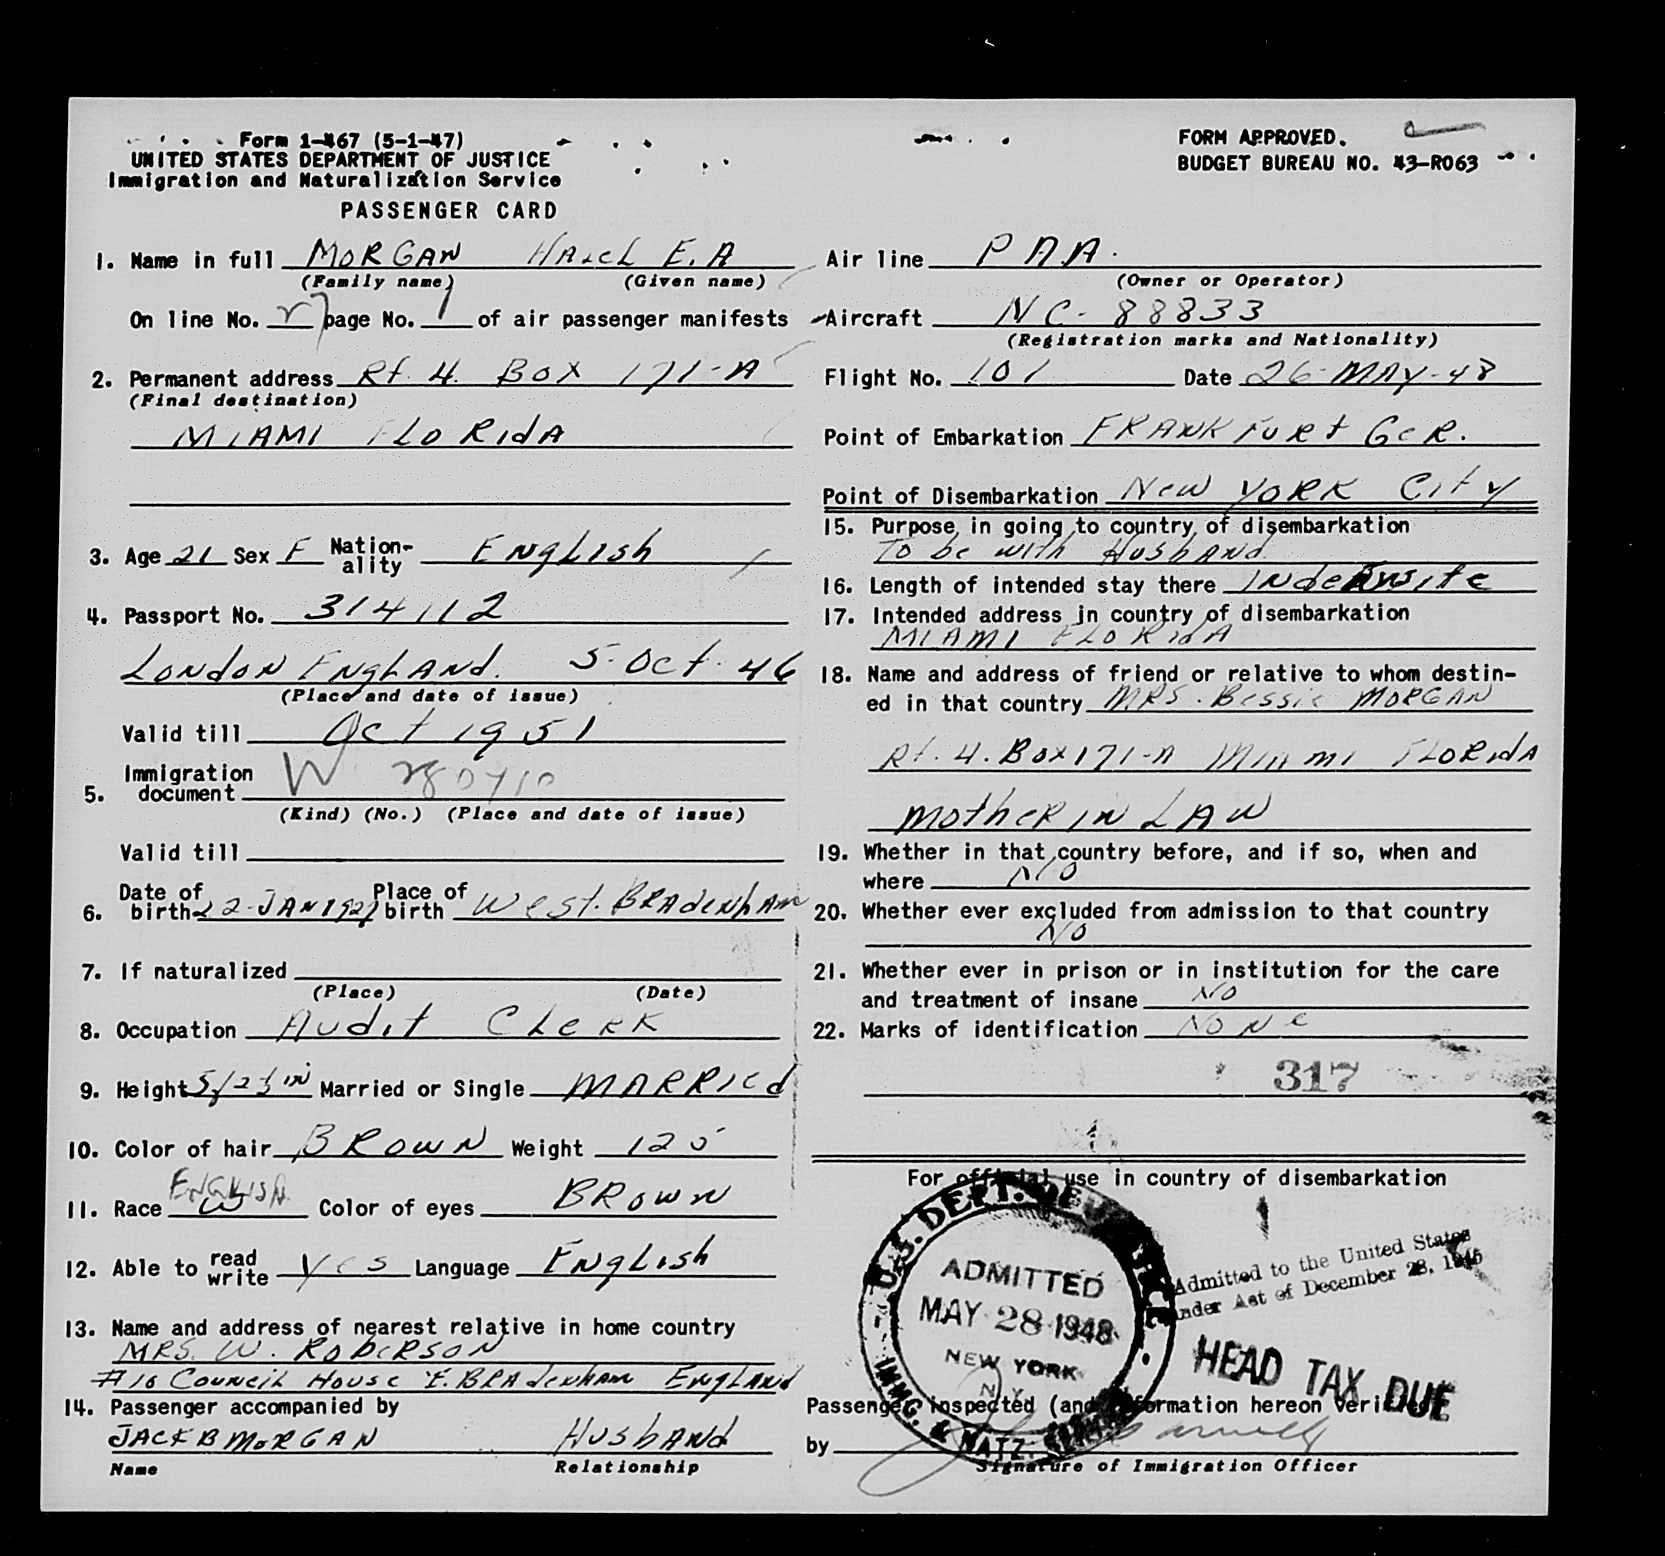 Form I-467 (5-1-47)
UNITED STATES DEPARTMENT OF JUSTICE
Immigration and Naturalization Service
PASSENGER CARD
FORM APPROVED.
BUDGET BUREAU NO. 43-R063
1. Name in full MORGAN E.A
(Family name) (Given name)
On line No. page No. 1 of air passenger manifests
2. Permanent address Rt. 4. Box 171-A
(Final destination)
MIAMI FLORIdA
3. Age 21 Sex F Nation-ality ENgLish
4. Passport No. 314112
LONdON ENgLANd. 5. Oct. 46
(Place and date of issue)
Valid till Oct 1951
5. Immigration document W
(Kind) (No.) (Place and date of issue)
Valid till
6. Date of birth 22-JAN 1927 Place of birth West. BRAdeNhAm
7. If naturalized
(Place) (Date)
8. Occupation Audit CLeRK
9. Height 5/2½ IN Married or Single MARRIed
10. Color of hair BROWN Weight 125
11. Race ENGLISH W Color of eyes BROWN
12. Able to read write Yes Language ENgLish
13. Name and address of nearest relative in home country
MRS. W. RObeRSON
#16 COUNciL HOUSe E. BRAdeNhAm ENgLANd
14. Passenger accompanied by
JACK B MORGAN HusbANd
Name Relationship
Air line P A A.
(Owner or Operator)
Aircraft NC-88833
(Registration marks and Nationality)
Flight No. 101 Date 26-MAy-48
Point of Embarkation FRANKFURt GeR.
Point of Disembarkation New YORK City
15. Purpose in going to country of disembarkation
To be with HusbANd.
16. Length of intended stay there
17. Intended address in country of disembarkation
MIAMI FLORIdA
18. Name and address of friend or relative to whom destin-
ed in that country MRS. Bessie MORGAN
Rt. 4. Box 171-A MIAMI FLORIdA
MotheR IN LAW
19. Whether in that country before, and if so, when and
where NO
20. Whether ever excluded from admission to that country
NO
21. Whether ever in prison or in institution for the care
and treatment of insane NO
22. Marks of identification NONe
317
For official use in country of disembarkation
U.S. DEPT. OF JUSTICE
ADMITTED
MAY 28 1948
NEW YORK
N.Y.
IMMG. & NATZ.
Admitted to the United States
under Act of December 28, 1945
HEAD TAX DUE
Passenger inspected (and information hereon verified)
by
Signature of Immigration Officer